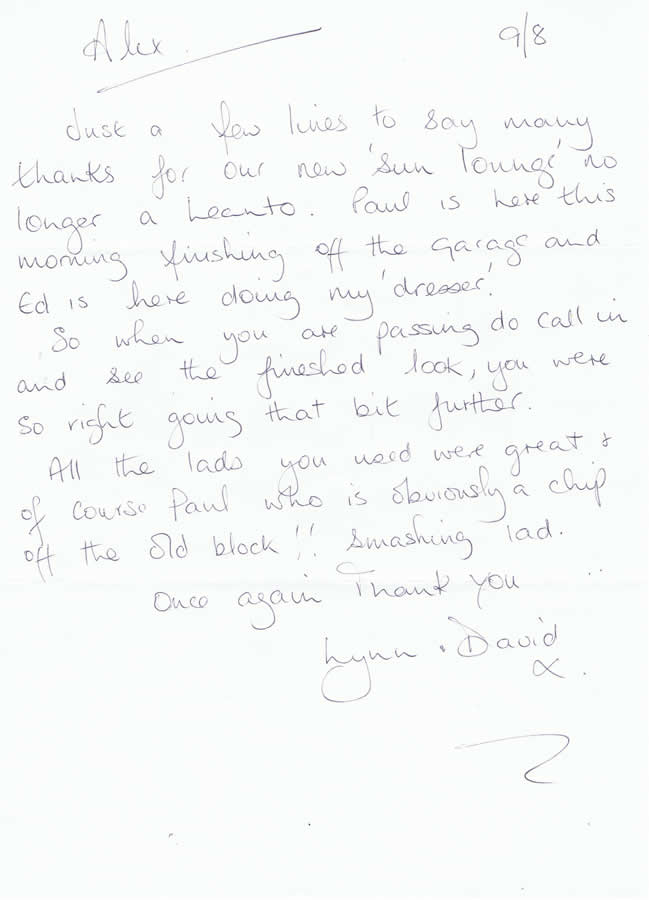 Alex. 9/8
Just a few lines to say many
thanks for our new 'sun lounge' no
longer a leanto. Paul is here this
morning finishing off the garage and
Ed is here doing my 'dresser'.
So when you are passing do call in
and see the fineshed look, you were
so right going that bit further.
All the lads you used were great &
of course Paul who is obviously a chip
off the old block!! Smashing lad.
Once again Thank you
Lynn & David
x.